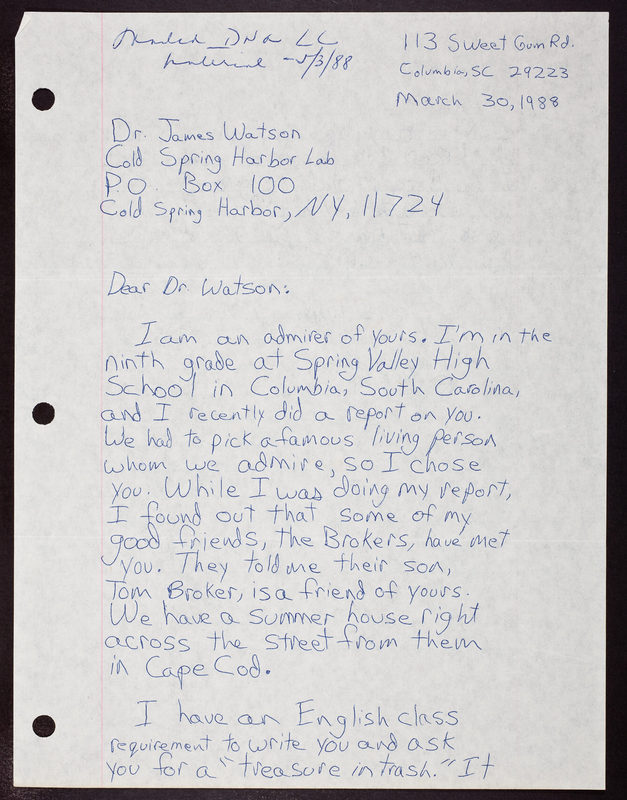 Mailed DNA LC
material - 5/3/88
113 Sweet Gum Rd.
Columbia, SC 29223
March 30, 1988
Dr. James Watson
Cold Spring Harbor Lab
P.O. Box 100
Cold Spring Harbor, NY, 11724
Dear Dr. Watson:
I am an admirer of yours. I'm in the
ninth grade at Spring Valley High
School in Columbia, South Carolina,
and I recently did a report on you.
We had to pick a famous living person
whom we admire, so I chose
you. While I was doing my report,
I found out that some of my
good friends, the Brokers, have met
you. They told me their son,
Tom Broker, is a friend of yours.
We have a summer house right
across the street from them
in Cape Cod.
I have an English class
requirement to write you and ask
you for a "treasure in trash." It